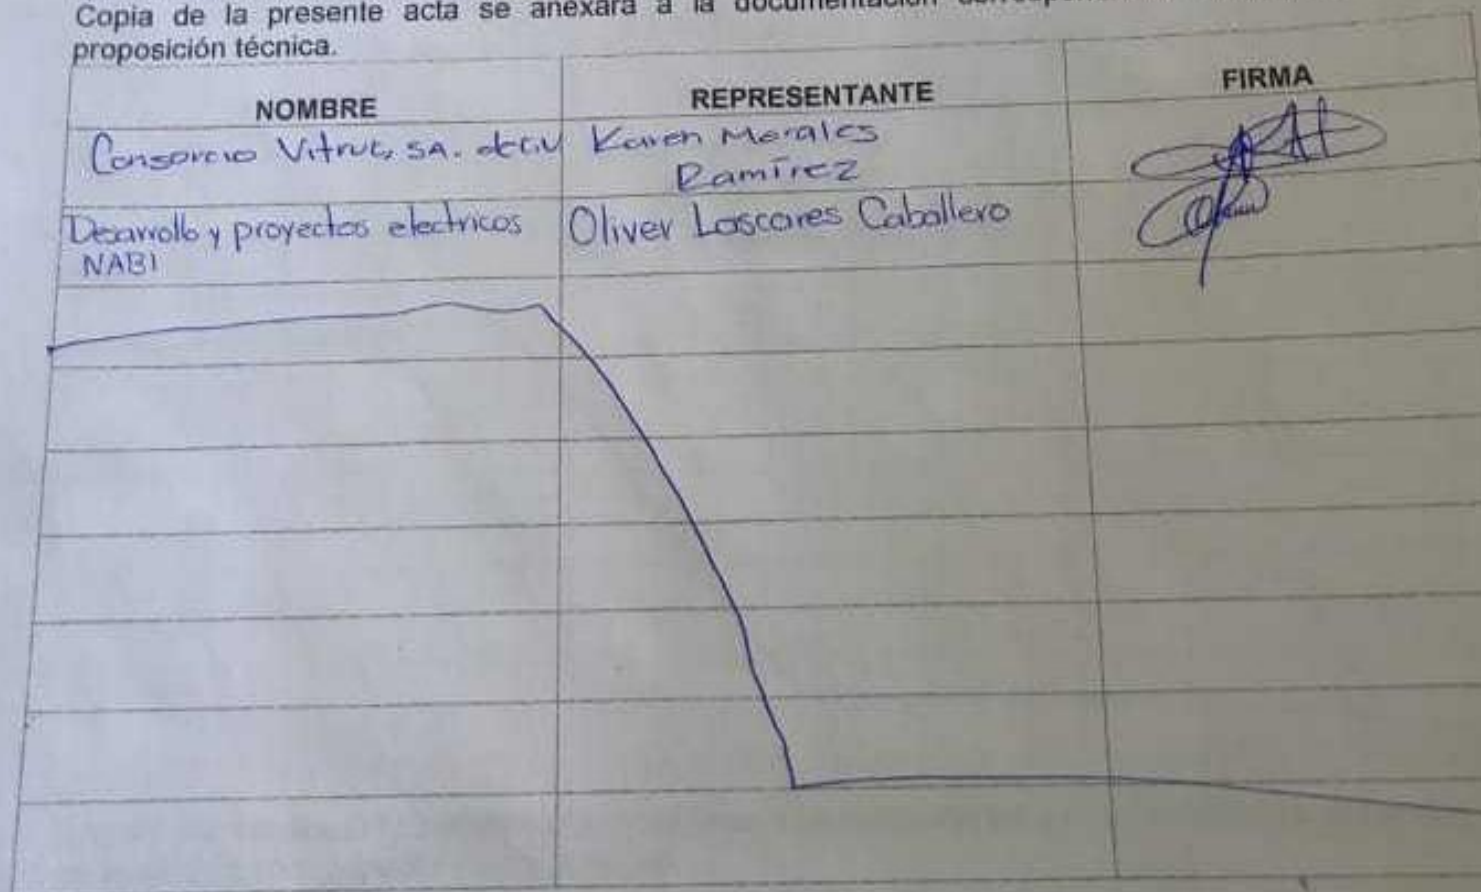 Copia de la presente acta se anexará a la documentación
proposición técnica.
NOMBRE REPRESENTANTE FIRMA
Consorcio Vitruc, SA. de CV Karen Morales
Ramírez
Desarrollo y proyectos electricos Oliver Lascares Caballero
NABI